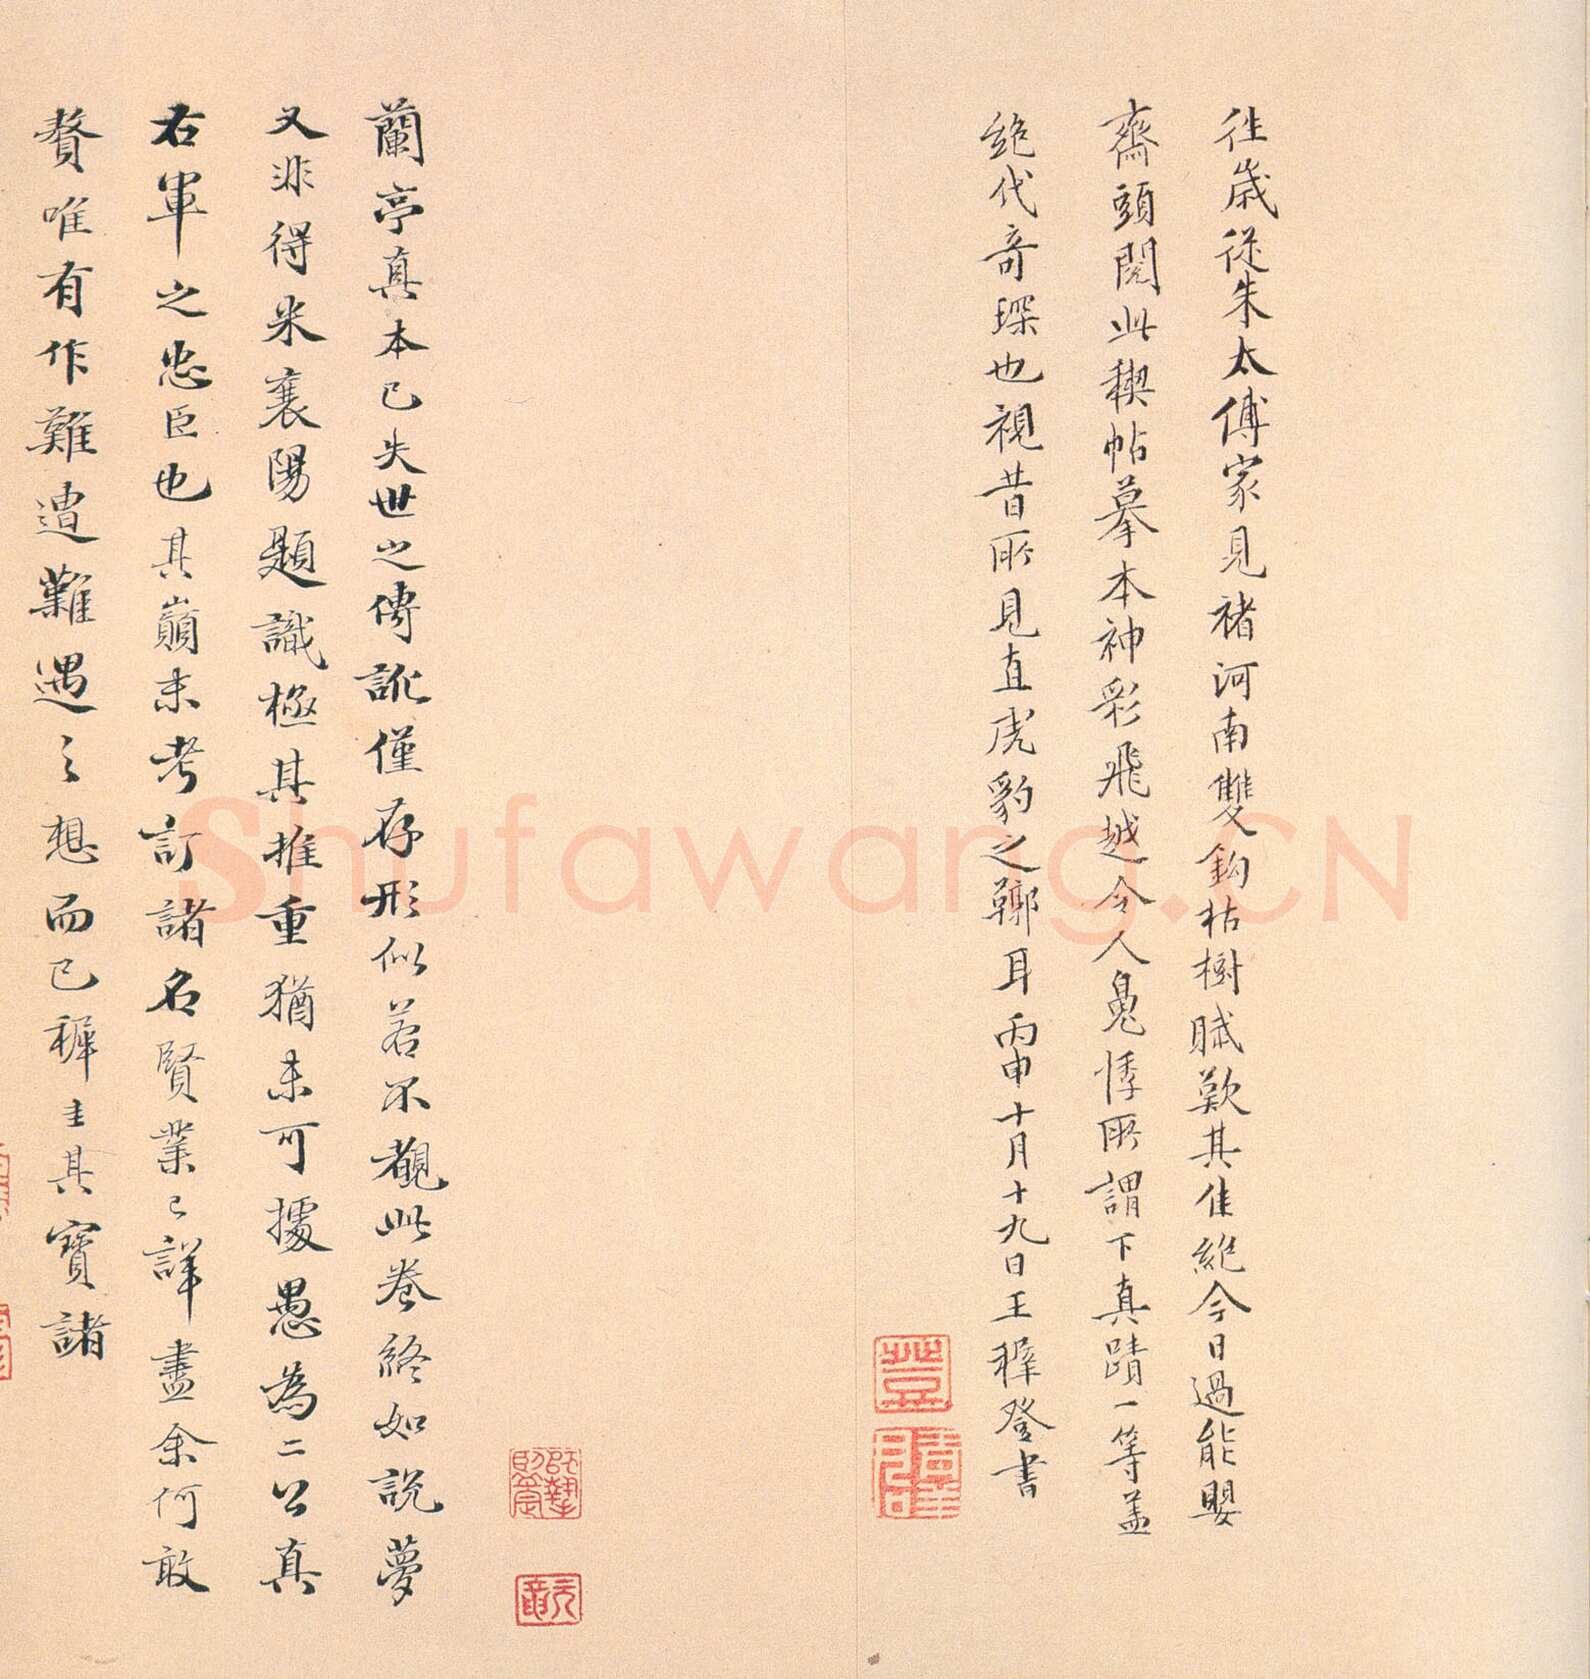 往歲從朱太傅家見褚河南雙鈎枯樹賦歎其佳絕今日過能嬰
齋頭閱此稧帖摹本神彩飛越令人鳧悸所謂下真蹟一等蓋
絕代奇琛也視昔所見直虎豹之鞹耳丙申十月十九日王穉登書
蘭亭真本已失世之傳訛僅存形似若不觀此卷終如說夢
又非得米襄陽題識極其推重猶未可據愚為二公真
右軍之忠臣也其巔末考訂諸名賢業已詳盡余何敢
贅唯有作難遭難遇之想而已穉圭其寶諸
Shufawang.CN